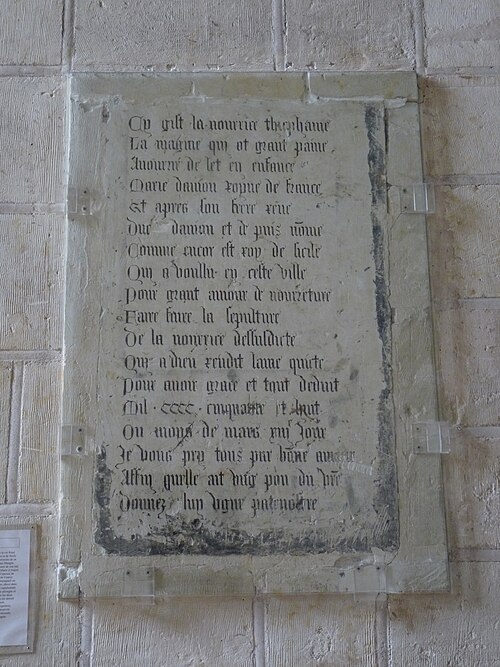 Cy gist la nourrice thephaine
La magine qui ot grant paine
A nourrir de let en enfance
Marie daniou royne de france
Et apres son frere rene
Duc daniou et de puis nōme
Comme encor est roy de sicile
Qui a voullu en ceste ville
Pour grant amour de nourreture
Faire faire la sepulture
De la nourrice dessusdicte
Qui a dieu rendit lame quicte
Pour auoir grace et tout deduit
Mil cccc cinquante et huit
Ou moys de mars xiii jour
Je vous pry tous par bōne amour
Affin quelle ait ung pou du vr̄e
Donnez luy ugne patenostre